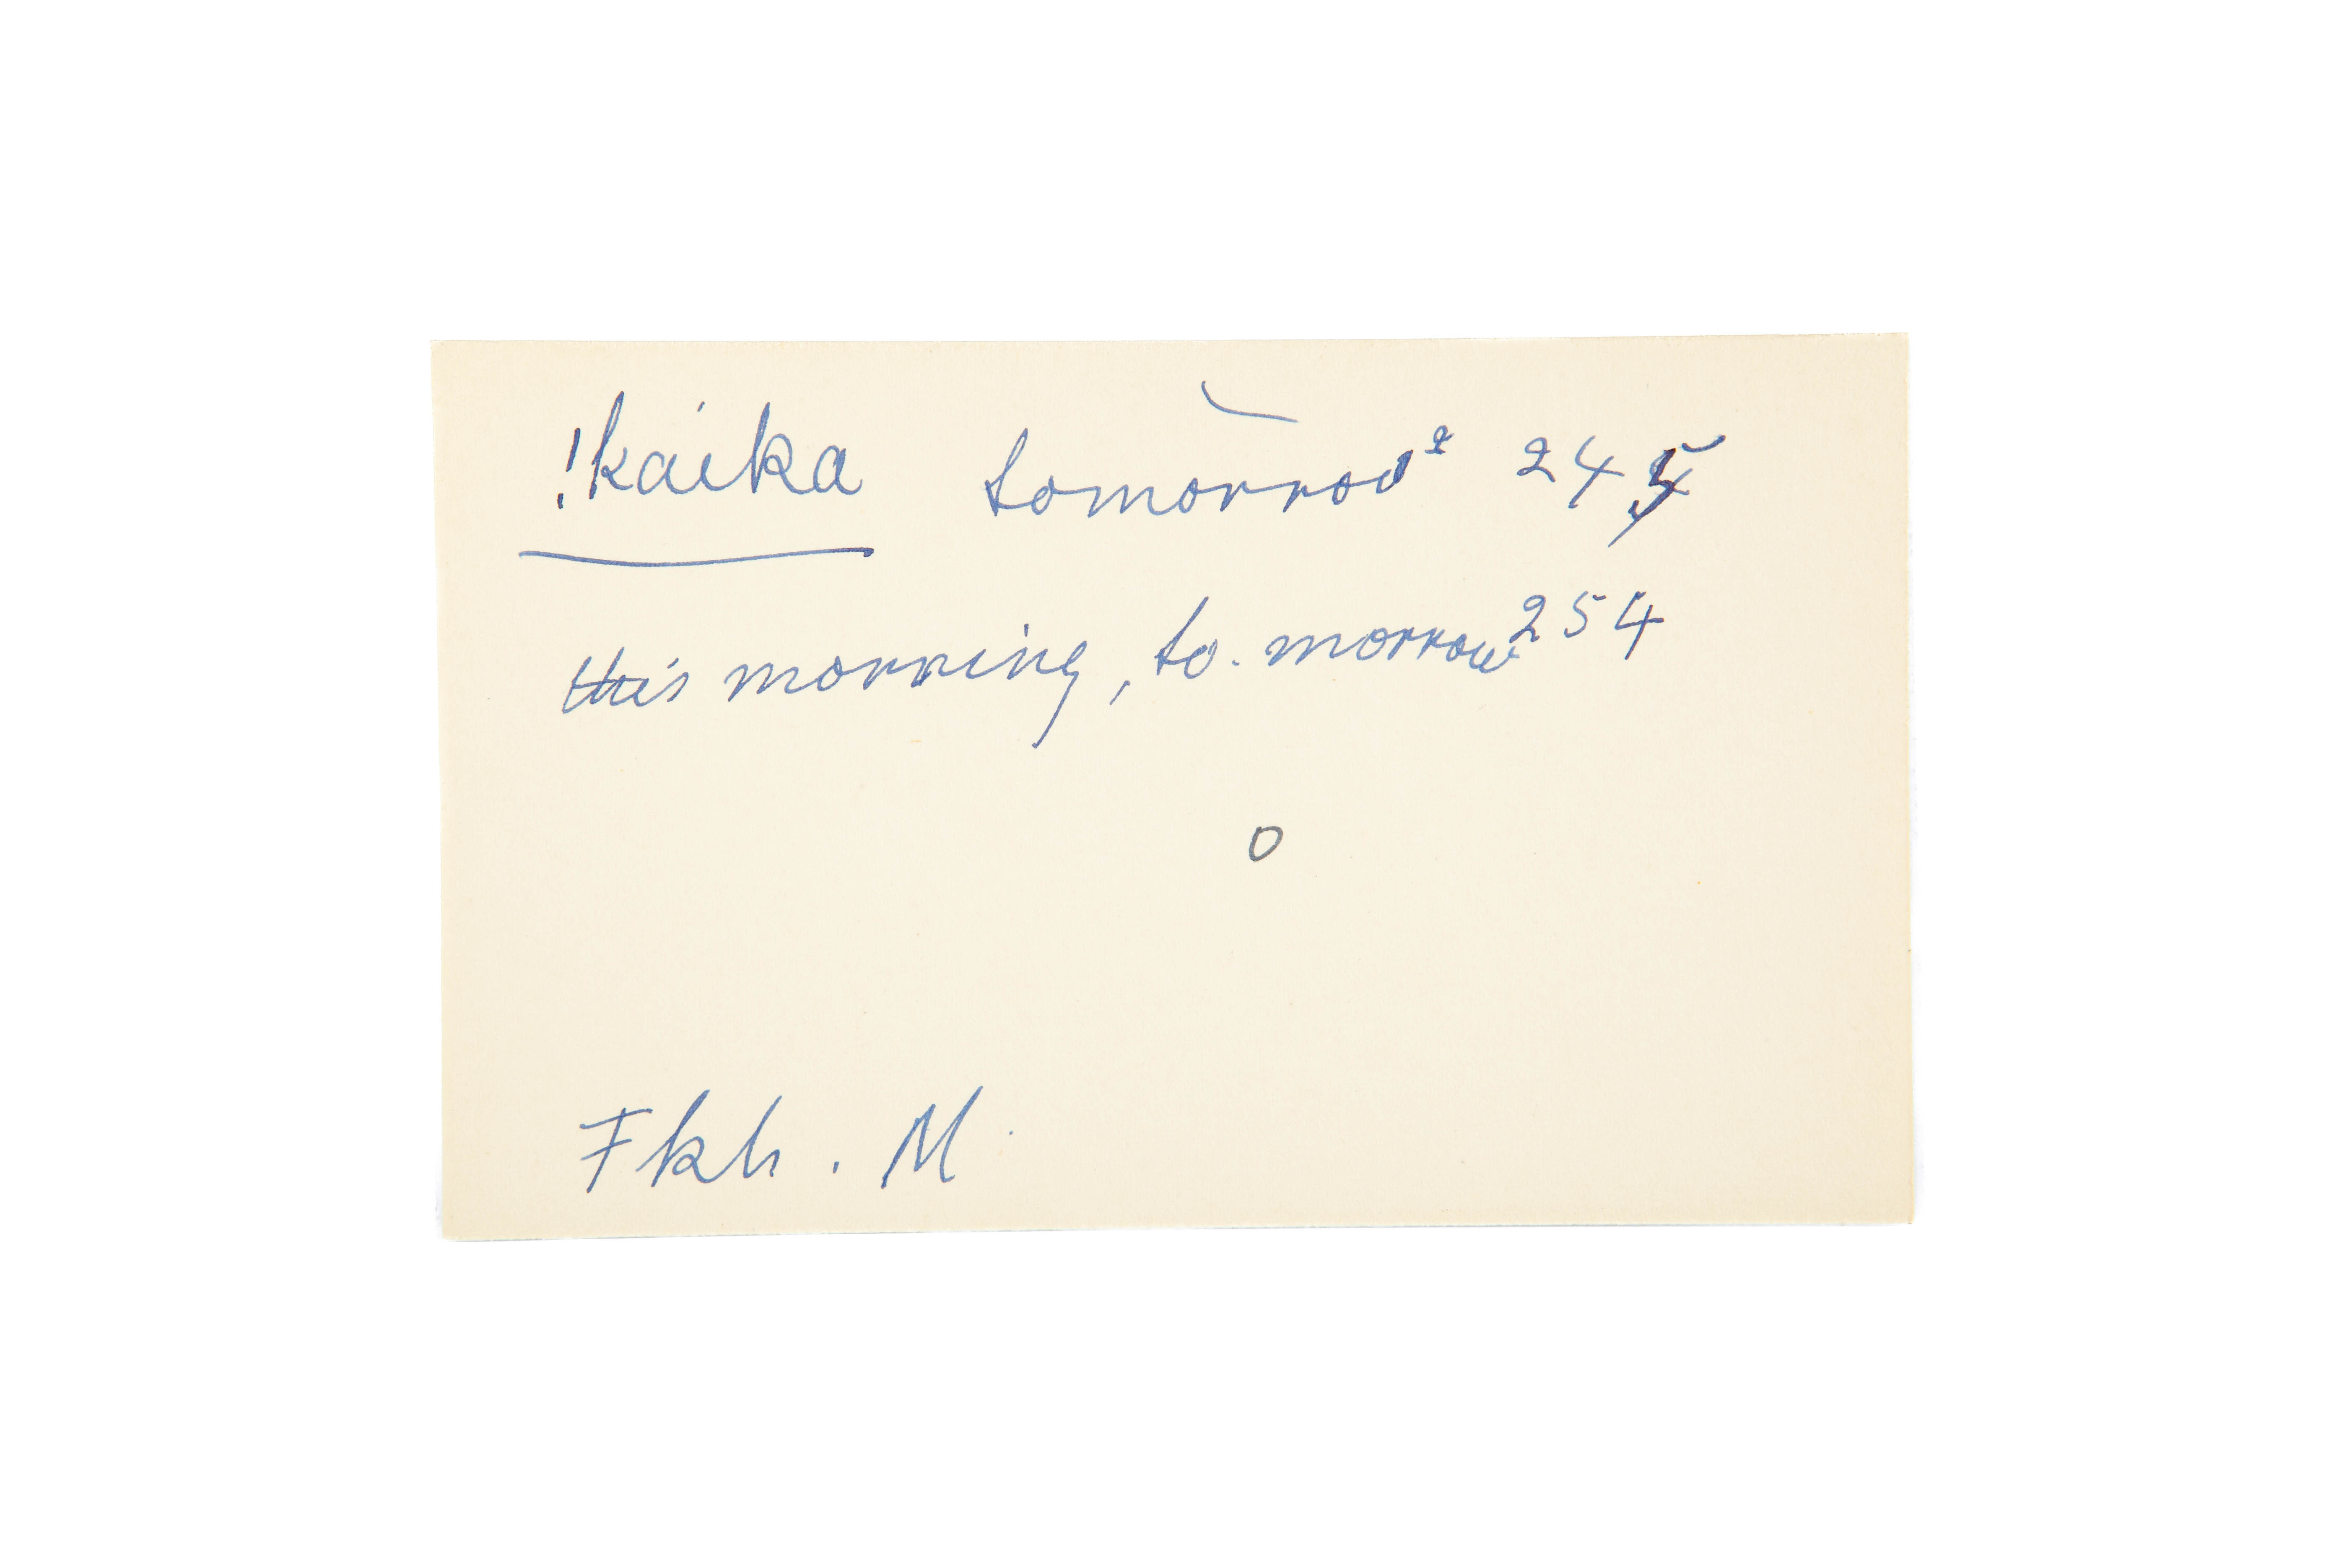 !kaika tomorrow 245
this morning, to-morrow 254
o
Fkh. M.